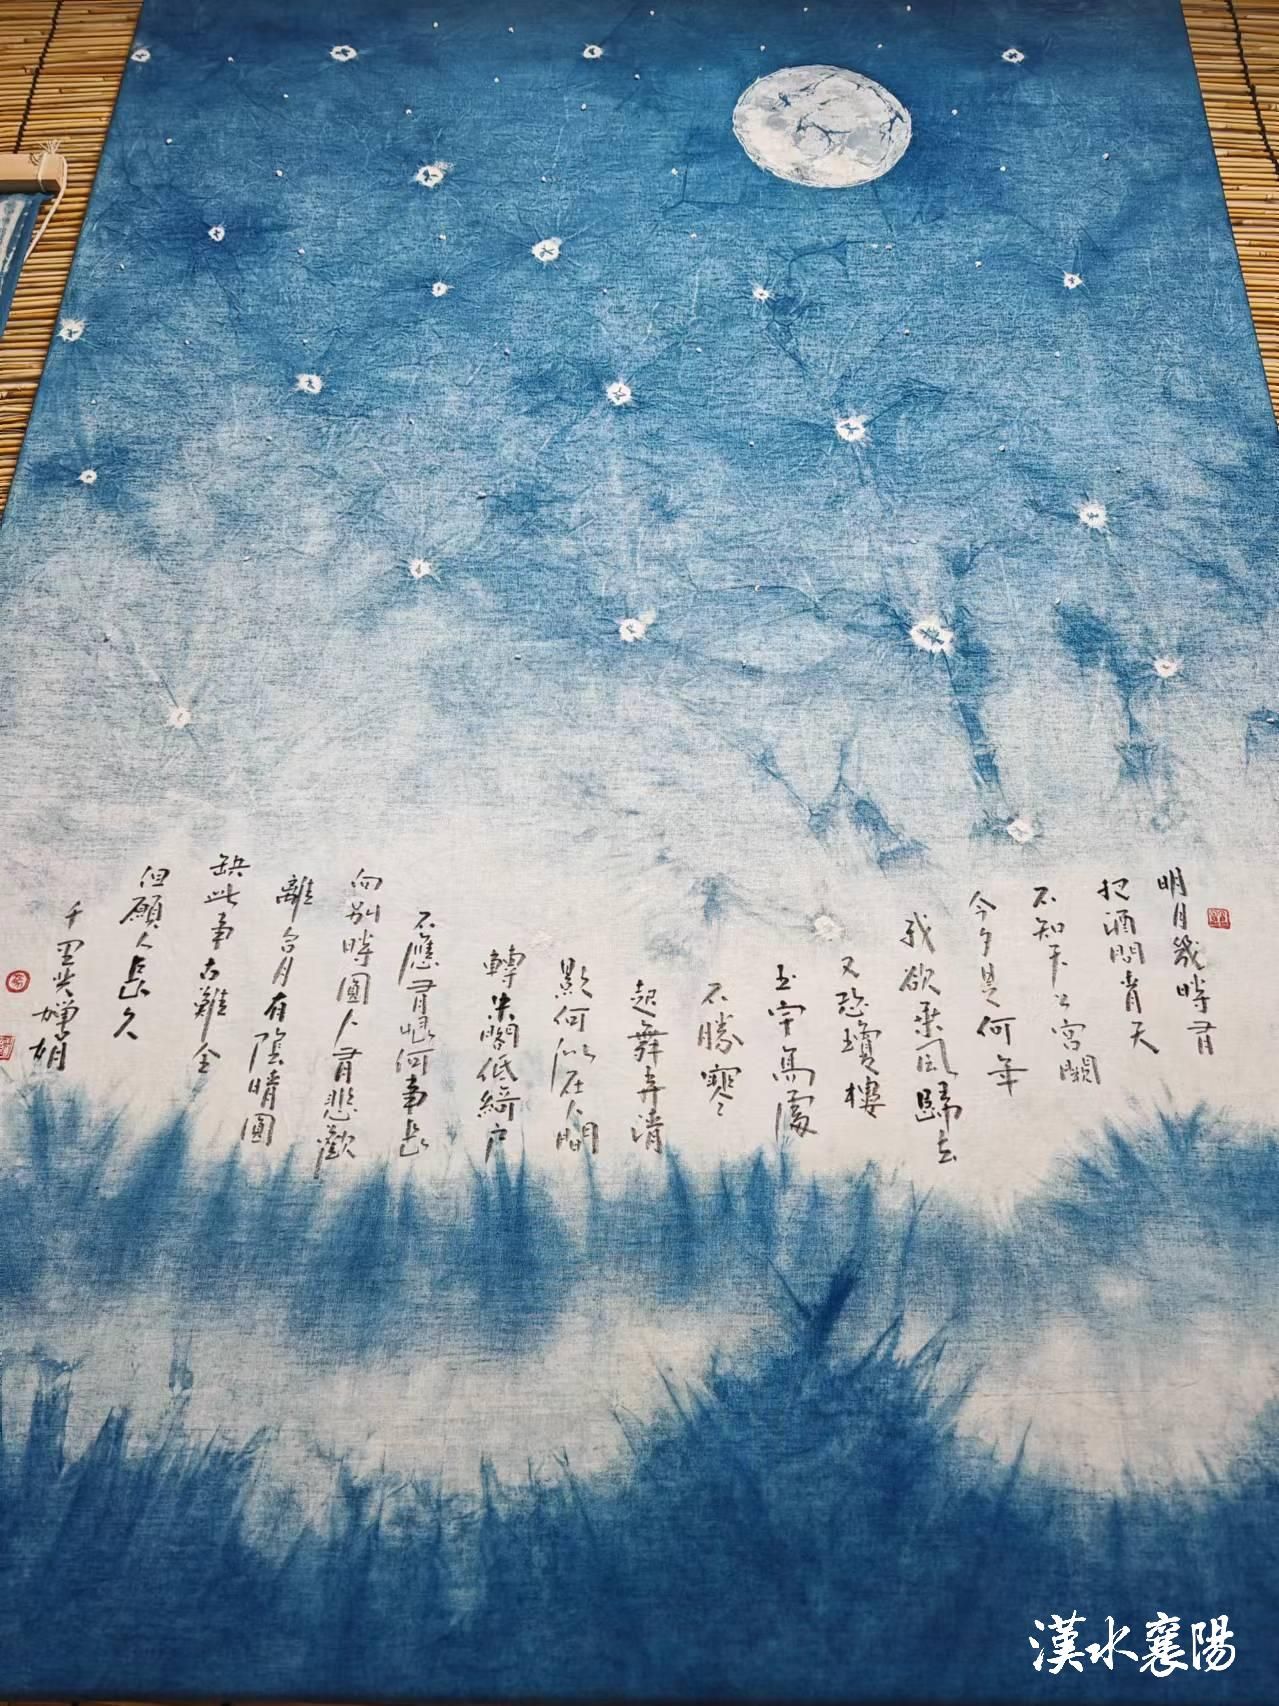 明月幾時有
把酒問青天
不知天上宮闕
今夕是何年
我欲乘风歸去
又恐瓊樓
玉宇高處
不勝寒
起舞弄清
影何似在人間
轉朱閣低綺户
不應有恨何事長
向别時圓人有悲歡
離合月有陰晴圓
缺此事古難全
但願人長久
千里共嬋娟
漢水襄陽